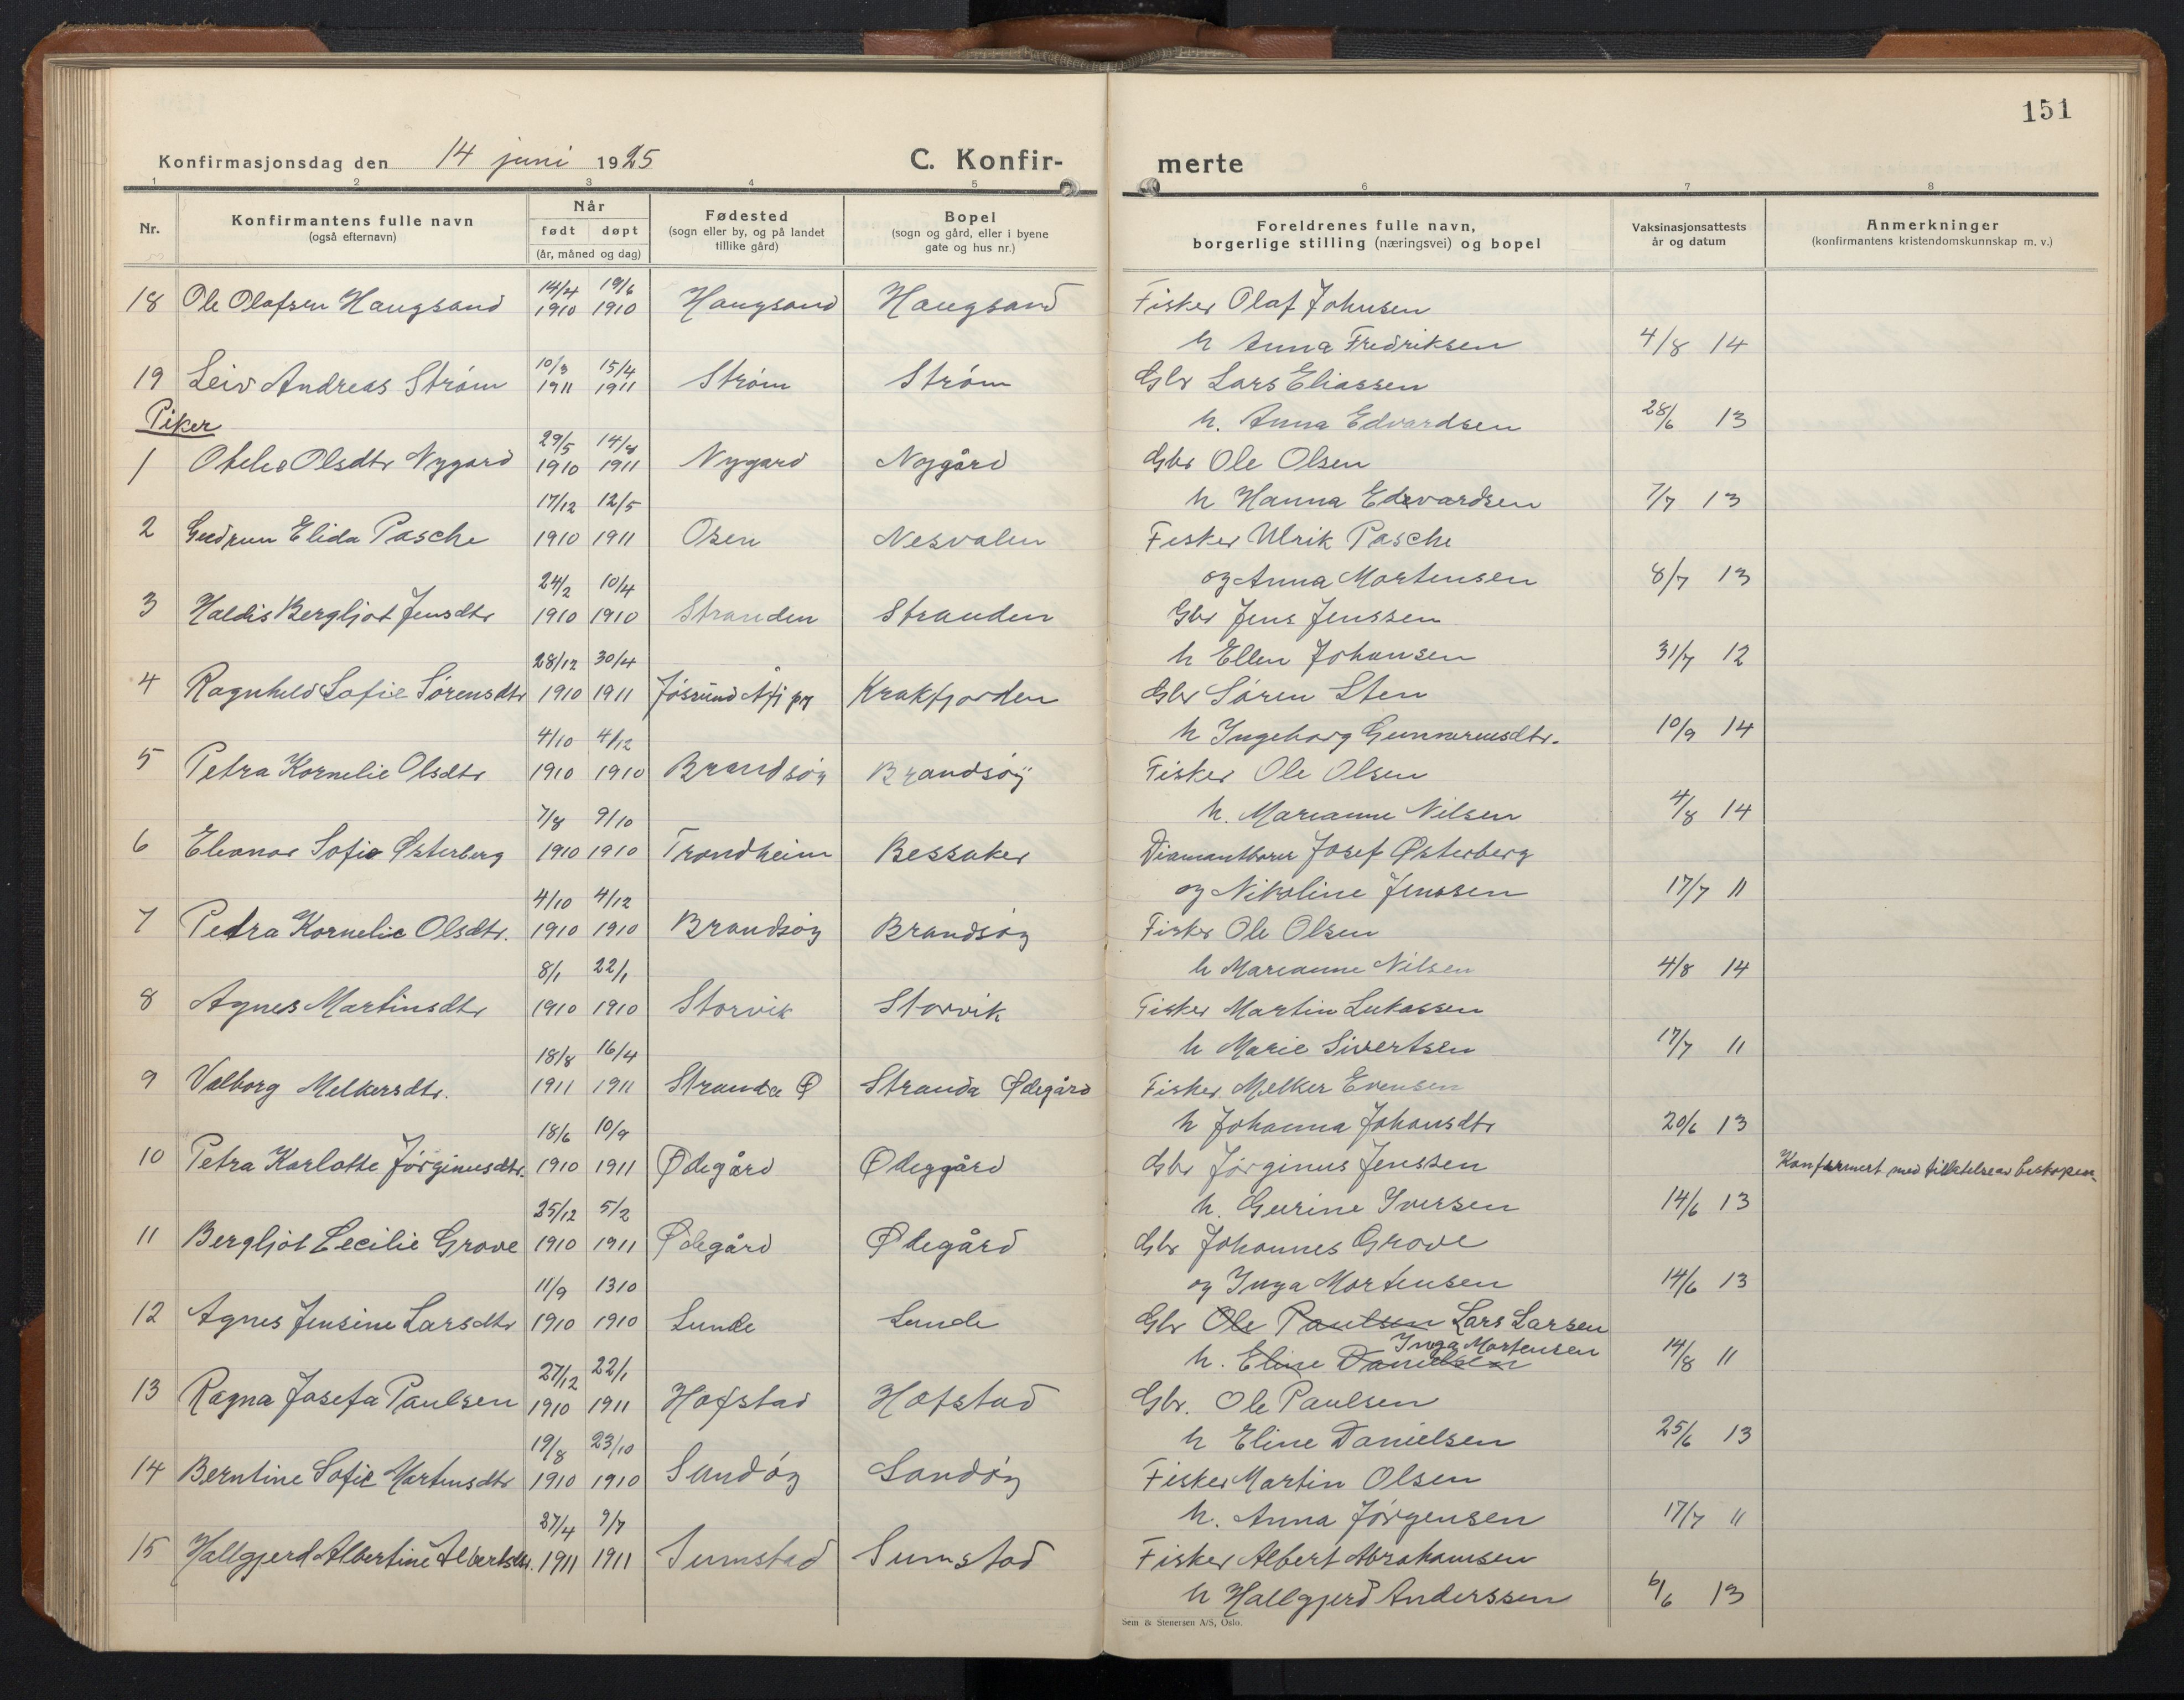 151
Konfirmasjonsdag den 14 juni 1925 C. Konfir- merte
1 2 3 4 5 6 7 8
Nr. Konfirmantens fulle navn (også efternavn) Når født døpt (år, måned og dag) Fødested (sogn eller by, og på landet tillike gård) Bopel (sogn og gård, eller i byene gate og hus nr.) Foreldrenes fulle navn, borgerlige stilling (næringsvei) og bopel Vaksinasjonsattests år og datum Anmerkninger (konfirmantens kristendomskunnskap m. v.)
14/4 19/6
18 Ole Olafsen Haugsand 1910 1910 Haugsand Haugsand Fisker Olaf Johnsen
h Anna Fredriksen 4/8 14
10/3 15/4
19 Leiv Andreas Strøm 1911 1911 Strøm Strøm Gbr Lars Eliassen
h. Anna Edvardsen 28/6 13
Piker
29/5 14/4
1 Olsdtr Nygard 1910 1911 Nygard Nygård Gbr Ole Olsen
h Hanna Edevardsen 7/7 13
17/12 12/5
2 Gudrun Elida Pasche 1910 1911 Osen Nesvalen Fisker Ulrik Pasche
og Anna Mortensen 8/7 13
24/2 10/4
3 Haldis Bergljot Jensdtr 1910 1910 Stranden Stranden Gbr Jens Jenssen
h Ellen Johansen 31/7 12
28/12 30/4
4 Ragnhild Sofie Sørensdtr 1910 1911 Jøssund Krakfjorden Gbr Søren Sten
h Ingeborg Gunnerusdtr. 10/9 14
4/10 4/12
5 Petra Kornelie Olsdtr 1910 1910 Brandsøy Brandsøy Fisker Ole Olsen
h. Marianne Nilsen 4/8 14
7/8 9/10
6 Eleonor Sofie Østerberg 1910 1910 Trondheim Bessaker Diamantborer Josef Østerberg
og Nikoline Jenssen 17/7 11
4/10 4/12
7 Petra Kornelie Olsdtr. 1910 1910 Brandsøy Brandsøy Fisker Ole Olsen
h Marianne Nilsen 4/8 14
8/1 22/1
8 Agnes Martinsdtr 1910 1910 Storvik Storvik Fisker Martin Lukassen
h Marie Sivertsen 17/7 11
18/8 16/4
9 Valborg Melkersdtr. 1911 1911 Stranda Ø Stranda Ødegård Fisker Melker Evensen
h Johanna Johansdtr 20/6 13
18/6 10/9
10 Petra Karlotte Jørginusdtr. 1910 1911 Ødegård Ødeggård Gbr Jørginus Jenssen Konfirmert med tillatelse av biskopen
h. Gurine Iversen 14/6 13
25/12 5/2
11 Bergljot Cecilie Grove 1910 1911 Ødegård Ødegård Gbr Johannes Grove
og Inga Mortensen 14/6 13
11/9 13 10
12 Agnes Jensine Larsdtr 1910 1910 Lunde Lunde Gbr Ole Paulsen Lars Larsen
h. Eline Danielsen Inga Mortensen 14/8 11
27/12 22/1
13 Ragna Josefa Paulsen 1910 1911 Hofstad Hofstad Gbr. Ole Paulsen
h Eline Danielsen 25/6 13
19/8 23/10
14 Berntine Sofie Martinsdtr 1910 1910 Sandøy Sandøy Fisker Martin Olsen
h. Anna Jørgensen 17/7 11
27/4 9/7
15 Hallgjerd Albertine Albertsdtr. 1911 1911 Sumstad Sumstad Fisker Albert Abrahamsen
h Hallgjerd Anderssen 6/6 13
Sem & Stenersen A/S, Oslo.